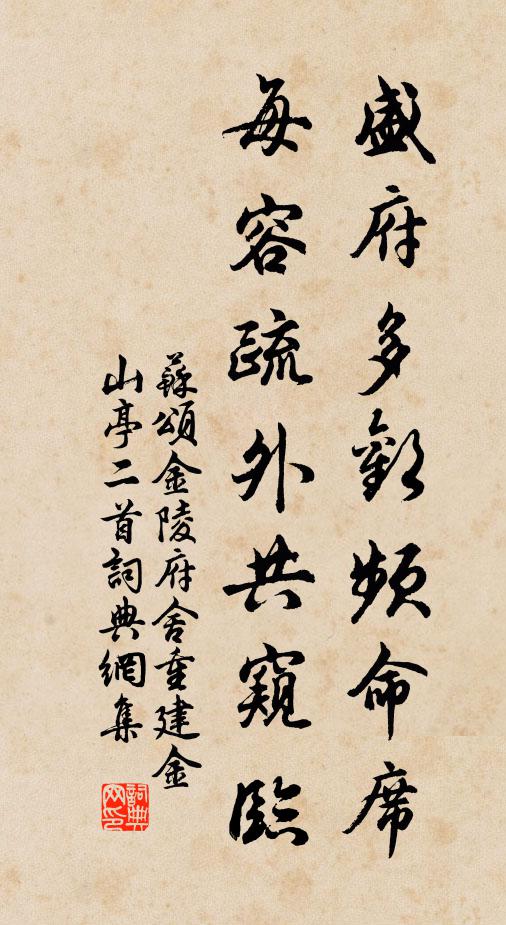 盛府多歡頻命席
每容疏外共窺臨
蘇頌金陵府舍重建金
山亭二首詞典網集
詞典
网印